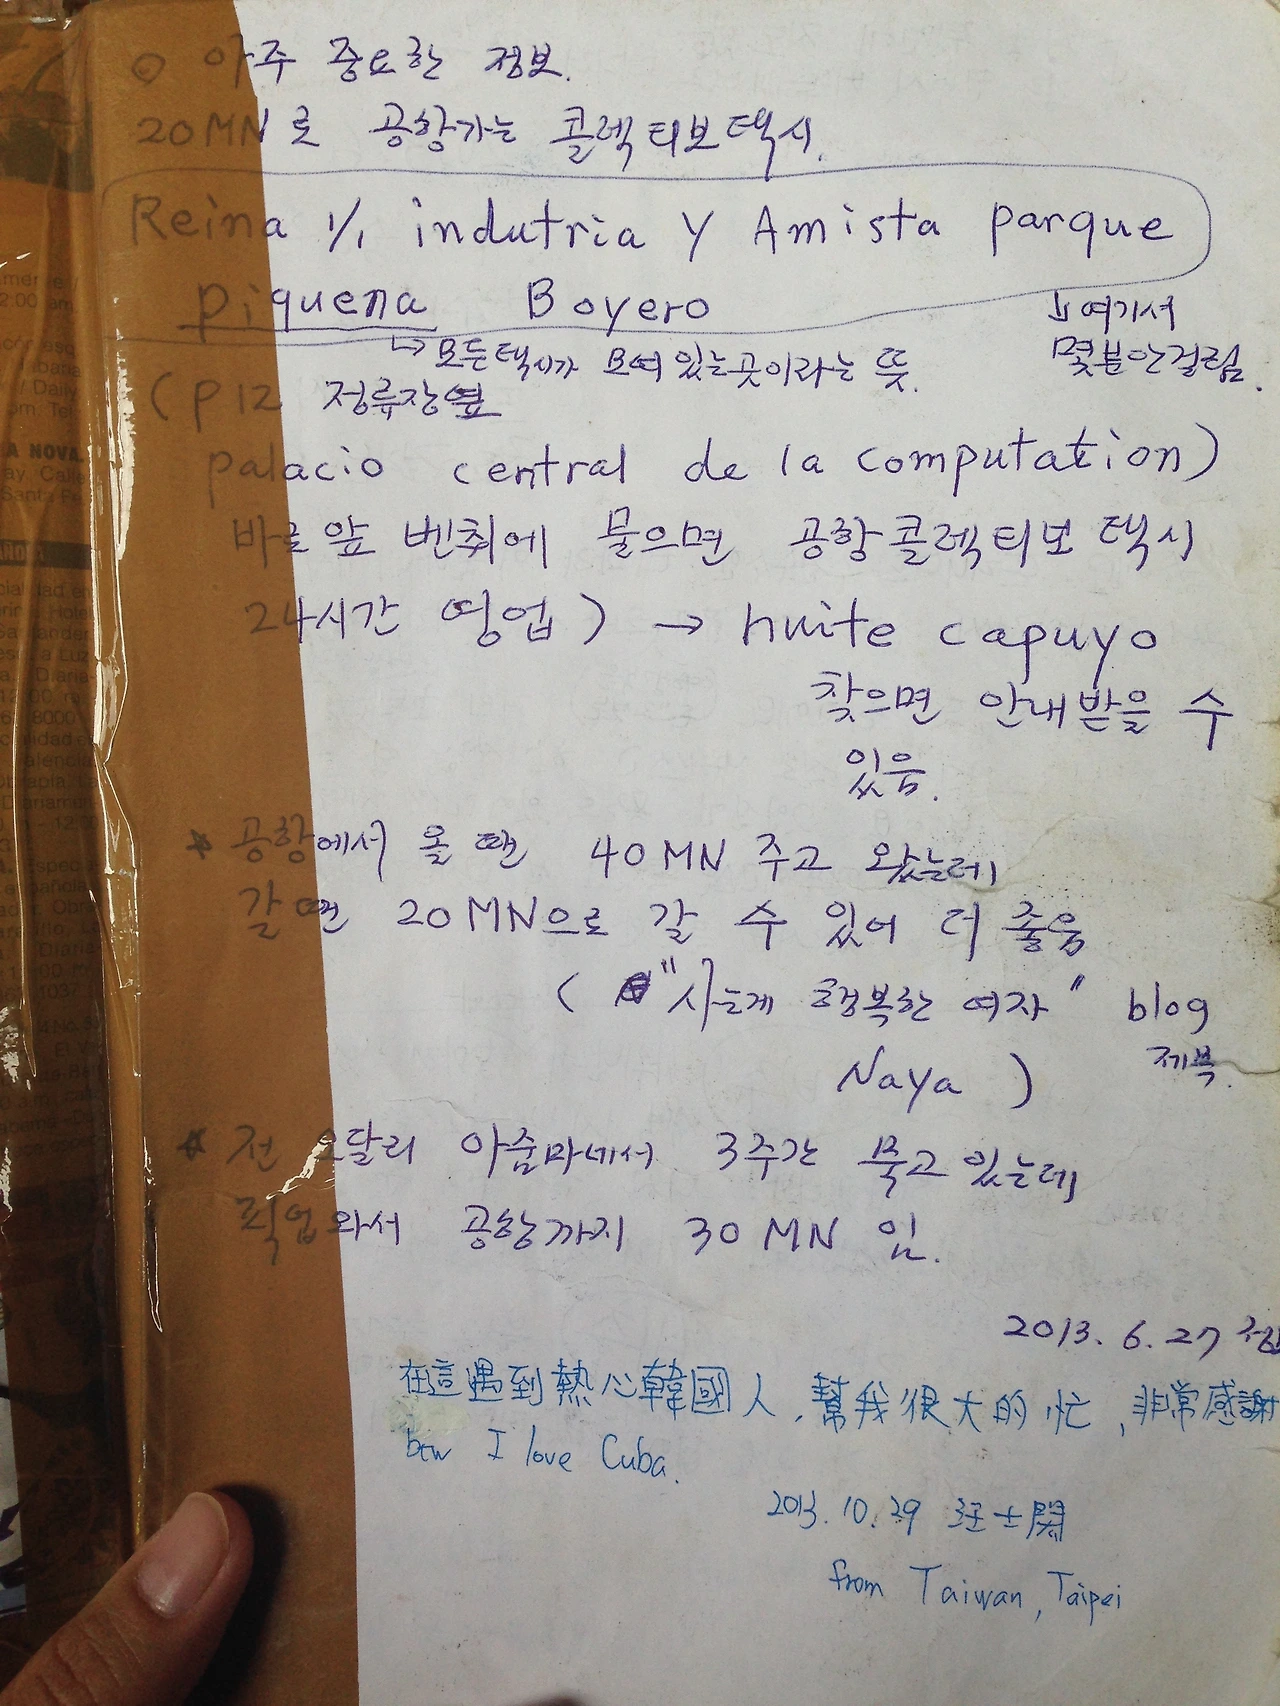 ○ 아주 중요한 정보.
20MN로 공항가는 콜렉티보택시.
Reina 1/1 indutria y Amista parque
piquena Boyero
↳ 모든택시가 모여 있는곳이라는 뜻.
↳여기서
몇분안걸림.
(P12 정류장옆
palacio central de la computation)
바로앞 벤취에 물으면 공항콜렉티보 택시
24시간 영업) → huite capuyo
찾으면 안내받을 수
있음.
★ 공항에서 올 땐 40MN 주고 왔는데
갈땐 20MN으로 갈 수 있어 더 좋음
( "사는게 행복한 여자" blog
제목.
Naya )
★ 전 오달리 아줌마네서 3주간 묵고 있는데
픽업와서 공항까지 30MN 임.
2013. 6. 27
在這遇到熱心韓國人, 幫我很大的忙, 非常感謝
btw I love Cuba.
2013. 10. 29 汪士
from Taiwan, Taipei